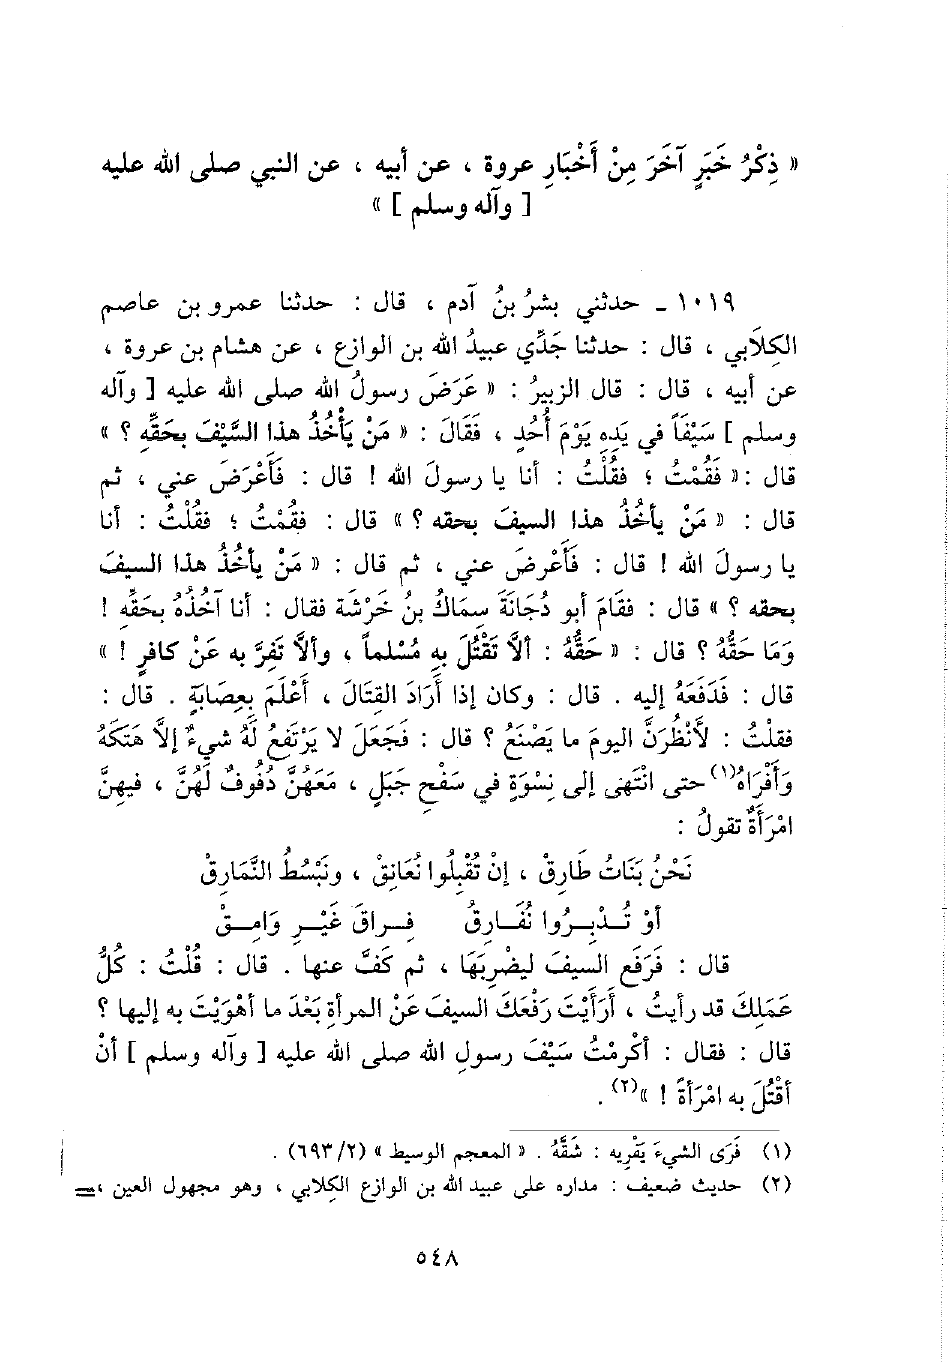 « ذِكْرُ خَبَرٍ آخَرَ مِنْ أَخْبَارِ عروة ، عن أبيه ، عن النبي صلى الله عليه
[ وآله وسلم ] »
١٠١٩ ـ حدثني بشرُ بنُ آدم ، قال : حدثنا عمرو بن عاصم
الكِلَابي ، قال : حدثنا جَدِّي عبيدُ الله بن الوازع ، عن هشام بن عروة ،
عن أبيه ، قال : قال الزبيرُ : « عَرَضَ رسولُ الله صلى الله عليه [ وآله
وسلم ] سَيْفَاً في يَدِهِ يَوْمَ أُحُدٍ ، فَقَالَ : « مَنْ يَأْخُذُ هذا السَّيْفَ بحَقِّهِ ؟ »
قال : « فَقُمْتُ ؛ فقُلْتُ : أنا يا رسولَ الله ! قال : فَأَعْرَضَ عني ، ثم
قال : « مَنْ يأخُذُ هذا السيفَ بحقه ؟ » قال : فقُمْتُ ؛ فقُلْتُ : أنا
يا رسولَ الله ! قال : فَأَعْرضَ عني ، ثم قال : « مَنْ يأخُذُ هذا السيفَ
بحقه ؟ » قال : فقَامَ أبو دُجَانَةَ سِمَاكُ بنُ خَرْشَة فقال : أنا آخُذُهُ بحَقِّهِ !
وَمَا حَقُّهُ ؟ قال : « حَقُّهُ : ألاَّ تَقْتُلَ بِهِ مُسْلماً ، وألاَّ تَفِرَّ به عَنْ كافرٍ ! »
قال : فَدَفَعَهُ إليه . قال : وكان إذا أَرَادَ القِتَالَ ، أَعْلَمَ بِعِصَابَةٍ . قال :
فقلْتُ : لأَنْظُرَنَّ اليومَ ما يَصْنَعُ ؟ قال : فَجَعَلَ لا يَرْتَفِعُ لَهُ شيءٌ إلاَّ هَتَكَهُ
وَأَفْرَاهُ(١) حتى انْتَهَى إلى نِسْوَةٍ في سَفْحِ جَبَلٍ ، مَعَهُنَّ دُفُوفٌ لَهُنَّ ، فيهنَّ
امْرَأَةٌ تقولُ :
نَحْنُ بَنَاتُ طَارِقْ ، إنْ تُقْبِلُوا نُعَانِقْ ، ونَبْسُطُ النَّمَارِقْ
أوْ تُـدْبِـرُوا نُفَـارِقْ فِـراقَ غَيْـرِ وَامِـقْ
قال : فَرَفع السيفَ ليضْرِبَهَا ، ثم كَفَّ عنها . قال : قُلْتُ : كُلُّ
عَمَلِكَ قد رأيتُ ، أَرَأَيْتَ رَفْعَكَ السيفَ عَنْ المرأةِ بَعْدَ ما أهْوَيْتَ به إليها ؟
قال : فقال : أكْرمْتُ سَيْفَ رسولِ الله صلى الله عليه [ وآله وسلم ] أنْ
أقْتُلَ به امْرَأةً ! »(٢) .
(١) فَرَى الشيءَ يَفْرِيه : شَقَّهُ . « المعجم الوسيط » (٦٩٣/٢) .
(٢) حديث ضعيف : مداره على عبيد الله بن الوازع الكلابي ، وهو مجهول العين ، =
٥٤٨